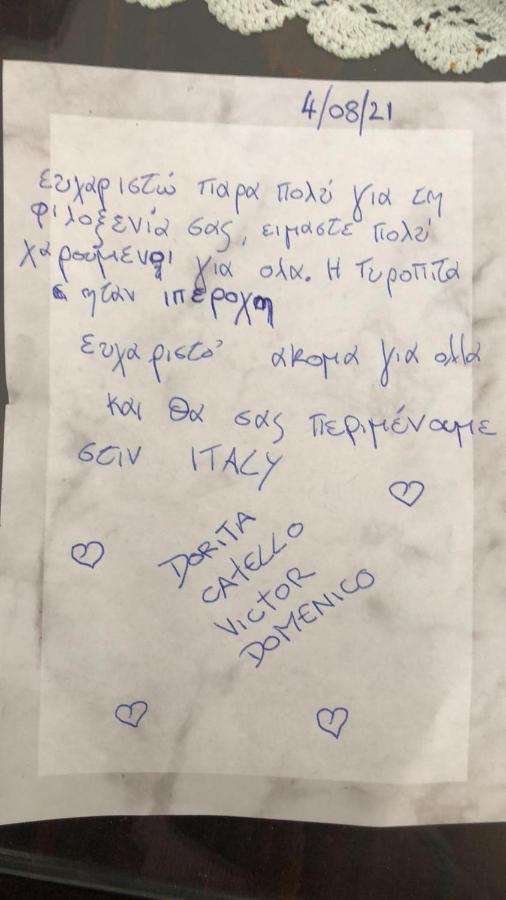 4/08/21
Ευχαριστώ παρα πολύ για τη
φιλοξενία σας, ειμαστε πολύ
χαρούμενοι για ολα. Η τυροπιτα
ηταν ιπεροχη
Ευχαριστό ακομα για ολλα
και θα σας περιμένουμε
στιν ITALY
DORITA
CATELLO
VICTOR
DOMENICO